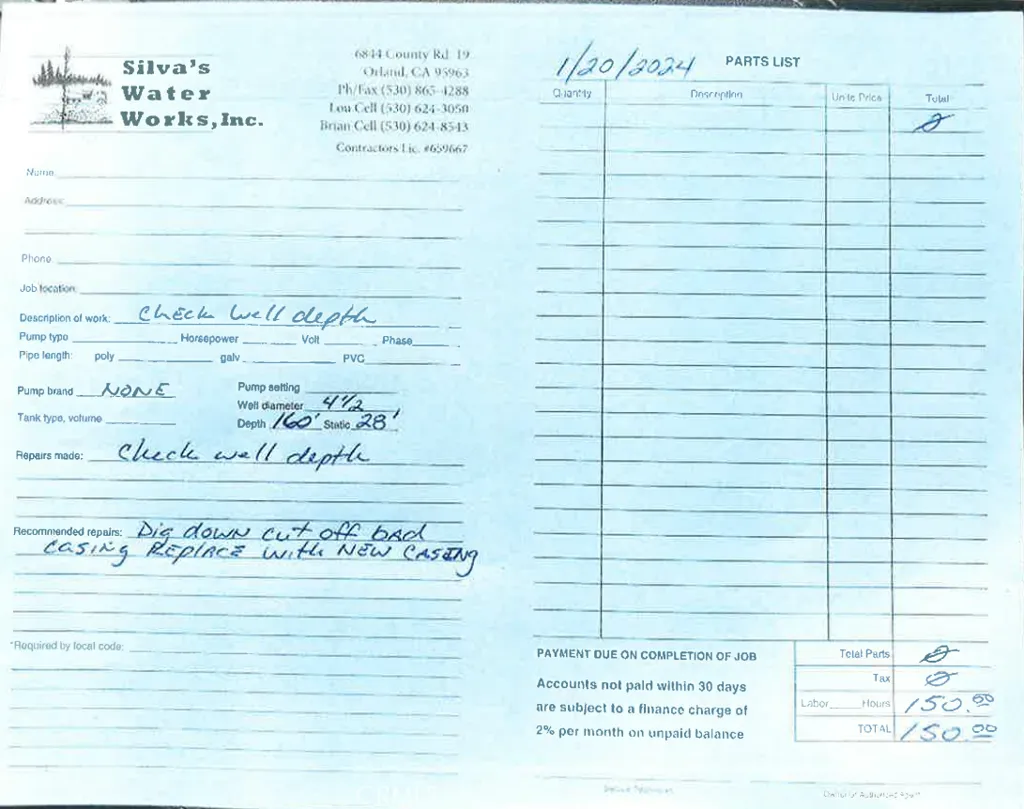 Silva's
Water
Works, Inc.
6844 County Rd. 19
Orland, CA 95963
Ph/Fax (530) 865-4288
Lou Cell (530) 624-3050
Brian Cell (530) 624-8543
Contractors Lic. #659667
Name
Address:
Phone
Job location:
Description of work: Check well depth
Pump type Horsepower Volt Phase
Pipe length: poly galv PVC
Pump brand NONE
Pump setting
Well diameter 4 1/2
Tank type, volume
Depth 160' Static 28'
Repairs made: Check well depth
Recommended repairs: Dig down cut off bad
casing Replace with new casing
*Required by local code:
1/20/2024 PARTS LIST
Quantity Description Unite Price Total
0
PAYMENT DUE ON COMPLETION OF JOB
Accounts not paid within 30 days
are subject to a finance charge of
2% per month on unpaid balance
Total Parts 0
Tax 0
Labor Hours 150.00
TOTAL 150.00
Owner or Authorized Agent